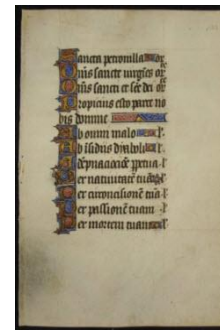 Sancta petronilla or
Om̄s sancte uirgīes or
Om̄s sancti et sc̄e dei or
Propicius esto parce no
bis domine
Ab omni malo l
Ab īsidiis dyaboli l
A dāpnacione ppetua l
Per natiuitatē tuā l
Per circūcisionē tuā l
Per passionē tuam l
Per mortem tuam l